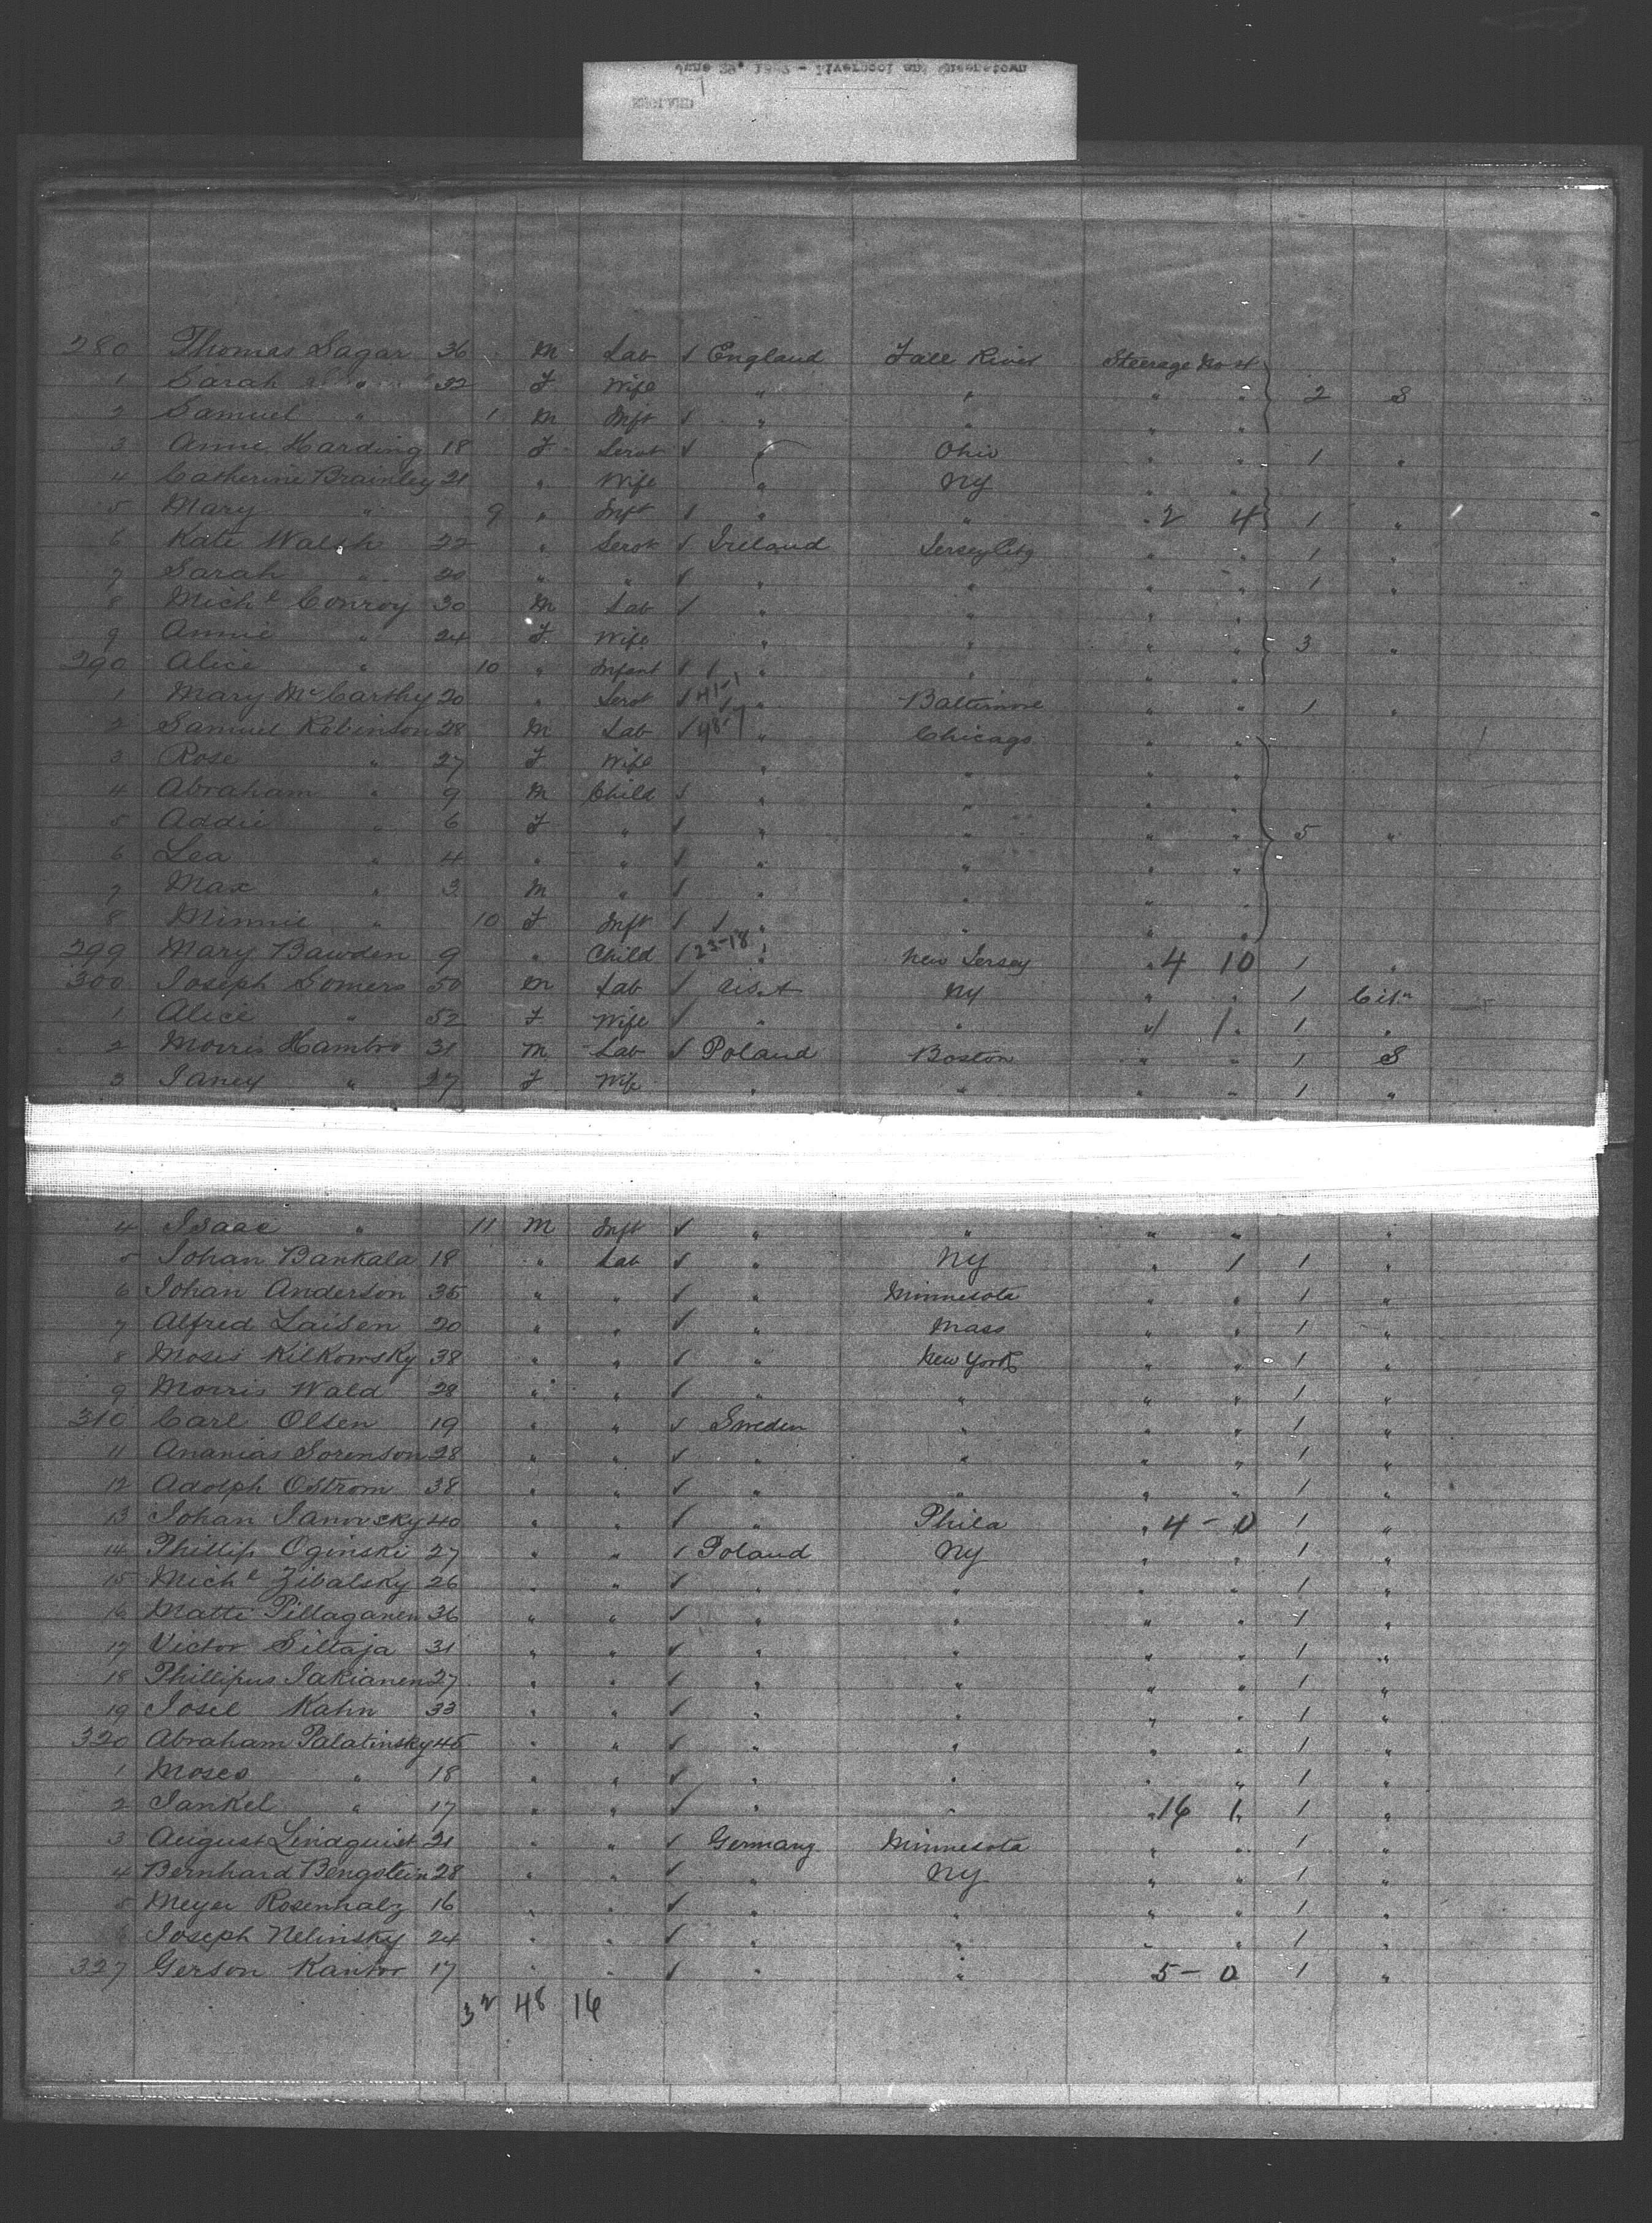 280 Thomas Sagar 36 M Lab ✓ England Fall River Steerage No 4
1 Sarah " 32 F Wife " " " " 2 S
2 Samuel " 1 M Inft ✓ " " " "
3 Annie Harding 18 F Servt ✓ " Ohio " " 1 "
4 Catherine Brainley 21 " Wife " NY " "
5 Mary " 9 " Inft ✓ " " " 2 4 1 "
6 Kate Walsh 22 " Servt ✓ Ireland Jersey City " " 1 "
7 Sarah " 20 " " ✓ " " " " 1 "
8 Michl Conroy 30 M Lab ✓ " " " "
9 Annie " 24 F Wife " " " " 3 "
290 Alice " 10 " Infant ✓ " " " "
1 Mary McCarthy 20 " Servt ✓ 41-1 " Baltimore " " 1 "
2 Samuel Robinson 28 M Lab ✓ 48-7 " Chicago " "
3 Rose " 27 F Wife " " " "
4 Abraham " 9 M Child ✓ " " " "
5 Addie " 6 F " ✓ " " " " 5 "
6 Lea " 4 " " ✓ " " " "
7 Max " 3 M " ✓ " " " "
8 Minnie " 10 F Inft ✓ " " " "
299 Mary Bawden 9 " Child ✓ 23-18 " New Jersey " 4 10 1 "
300 Joseph Somers 50 M Lab ✓ U.S.A NY " " 1 Citn
1 Alice " 52 F Wife ✓ " " " 1 1 1 "
2 Morris Hambro 31 M Lab ✓ Poland Boston " " 1 S
3 Janey " 27 F Wife " " " " 1 "
4 Isaac " 11 M Inft ✓ " " " " "
5 Johan Bankala 18 " Lab ✓ " NY " 1 1 "
6 Johan Anderson 35 " " ✓ " Minnesota " " 1 "
7 Alfred Laisen 20 " " ✓ " Mass " " 1 "
8 Moses Kilkowsky 38 " " ✓ " New York " " 1 "
9 Morris Wald 28 " " ✓ " " " " 1 "
310 Carl Olsen 19 " " ✓ Sweden " " " 1 "
11 Ananias Sorenson 28 " " ✓ " " " " 1 "
12 Adolph Ostrom 38 " " ✓ " " " " 1 "
13 Johan Janovsky 40 " " ✓ " Phila " 4 - 0 1 "
14 Phillip Oginski 27 " " ✓ Poland NY " " 1 "
15 Michl Zibalsky 26 " " ✓ " " " " 1 "
16 Matti Pillaganen 36 " " ✓ " " " " 1 "
17 Victor Siltaja 31 " " ✓ " " " " 1 "
18 Phillipus Jakianen 27 " " ✓ " " " " 1 "
19 Josel Kahn 33 " " ✓ " " " " 1 "
320 Abraham Palatinsky 45 " " ✓ " " " " 1 "
1 Moses " 18 " " ✓ " " " " 1 "
2 Jankel " 17 " " ✓ " " " 16 1 1 "
3 August Lindquist 21 " " ✓ Germany Minnesota " " 1 "
4 Bernhard Bengstein 28 " " ✓ " NY " " 1 "
5 Meyer Rosenhalz 16 " " ✓ " " " " 1 "
6 Joseph Nelinsky 24 " " ✓ " " " " 1 "
327 Gerson Kantor 17 " " ✓ " " " 5 - 0 1 "
32 48 16